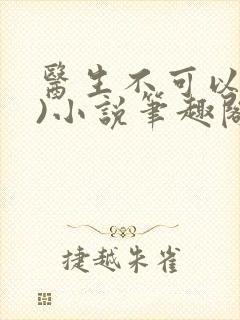 醫生不可以
)小說筆趣閣
捷越朱雀